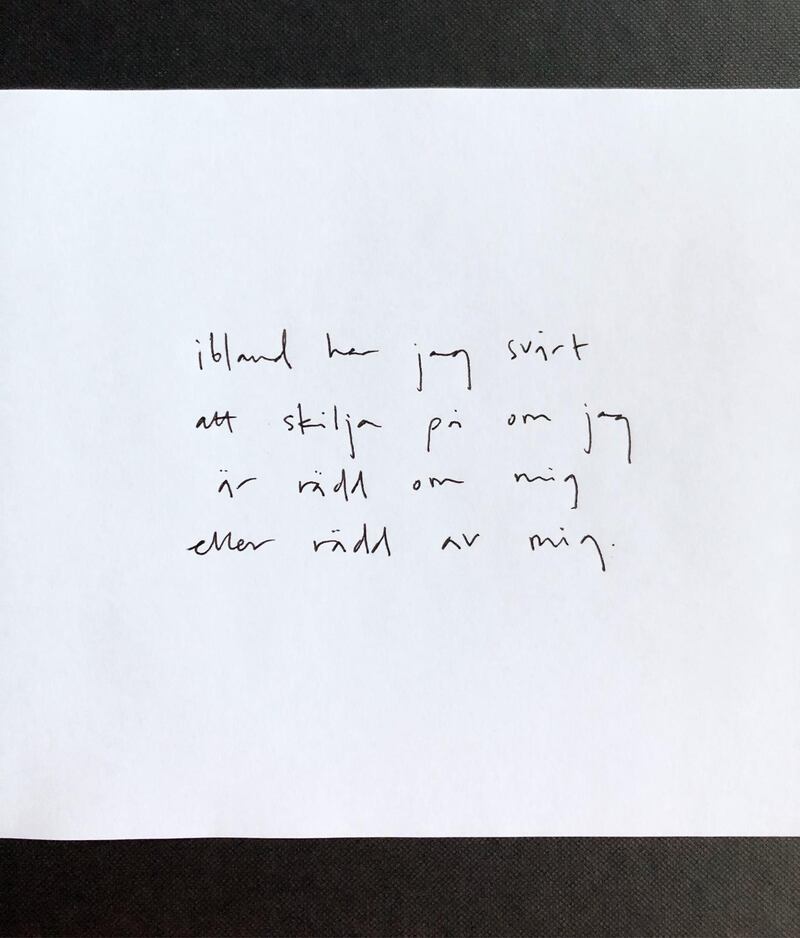 ibland har jag svårt
att skilja på om jag
är rädd om mig
eller rädd av mig.